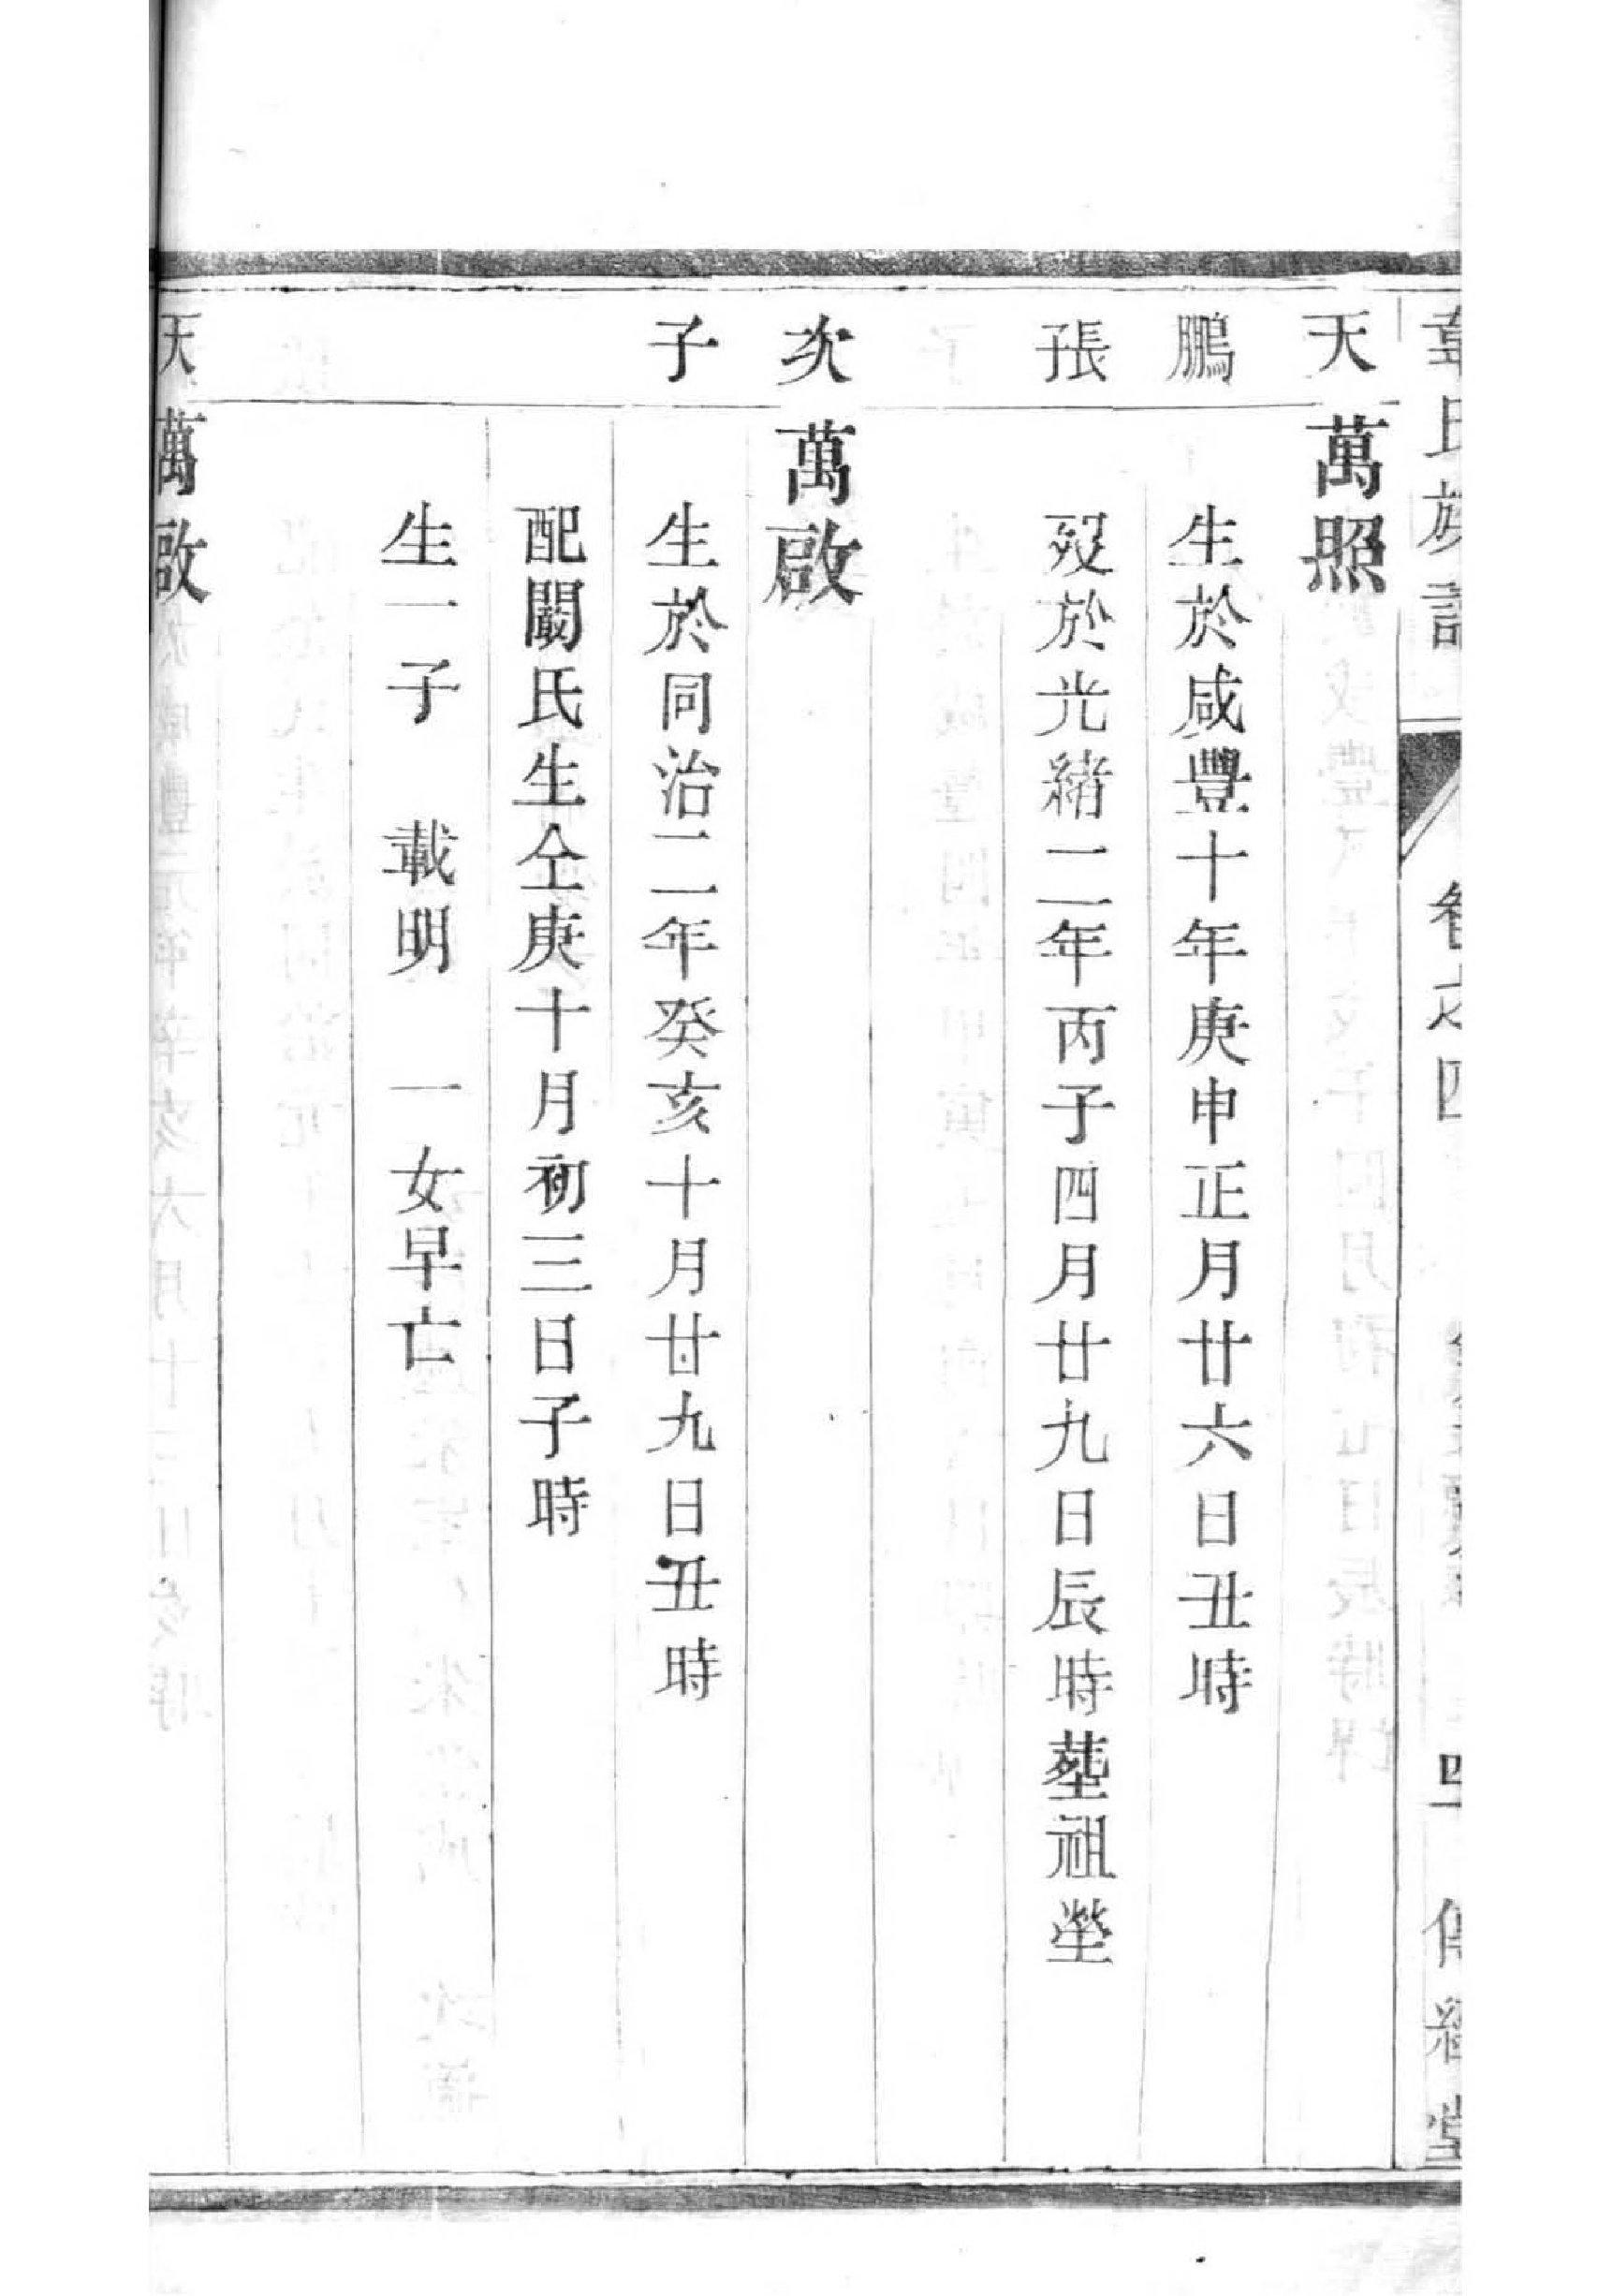 氏族譜 卷之四 傳經堂
天 萬照
鵬 生於咸豐十年庚申正月廿六日丑時
張 歿於光緒二年丙子四月廿九日辰時塟祖塋
次 萬啟
子 生於同治二年癸亥十月廿九日丑時
配闞氏生仝庚十月初三日子時
生一子 載明 一女早亡
天 萬啟